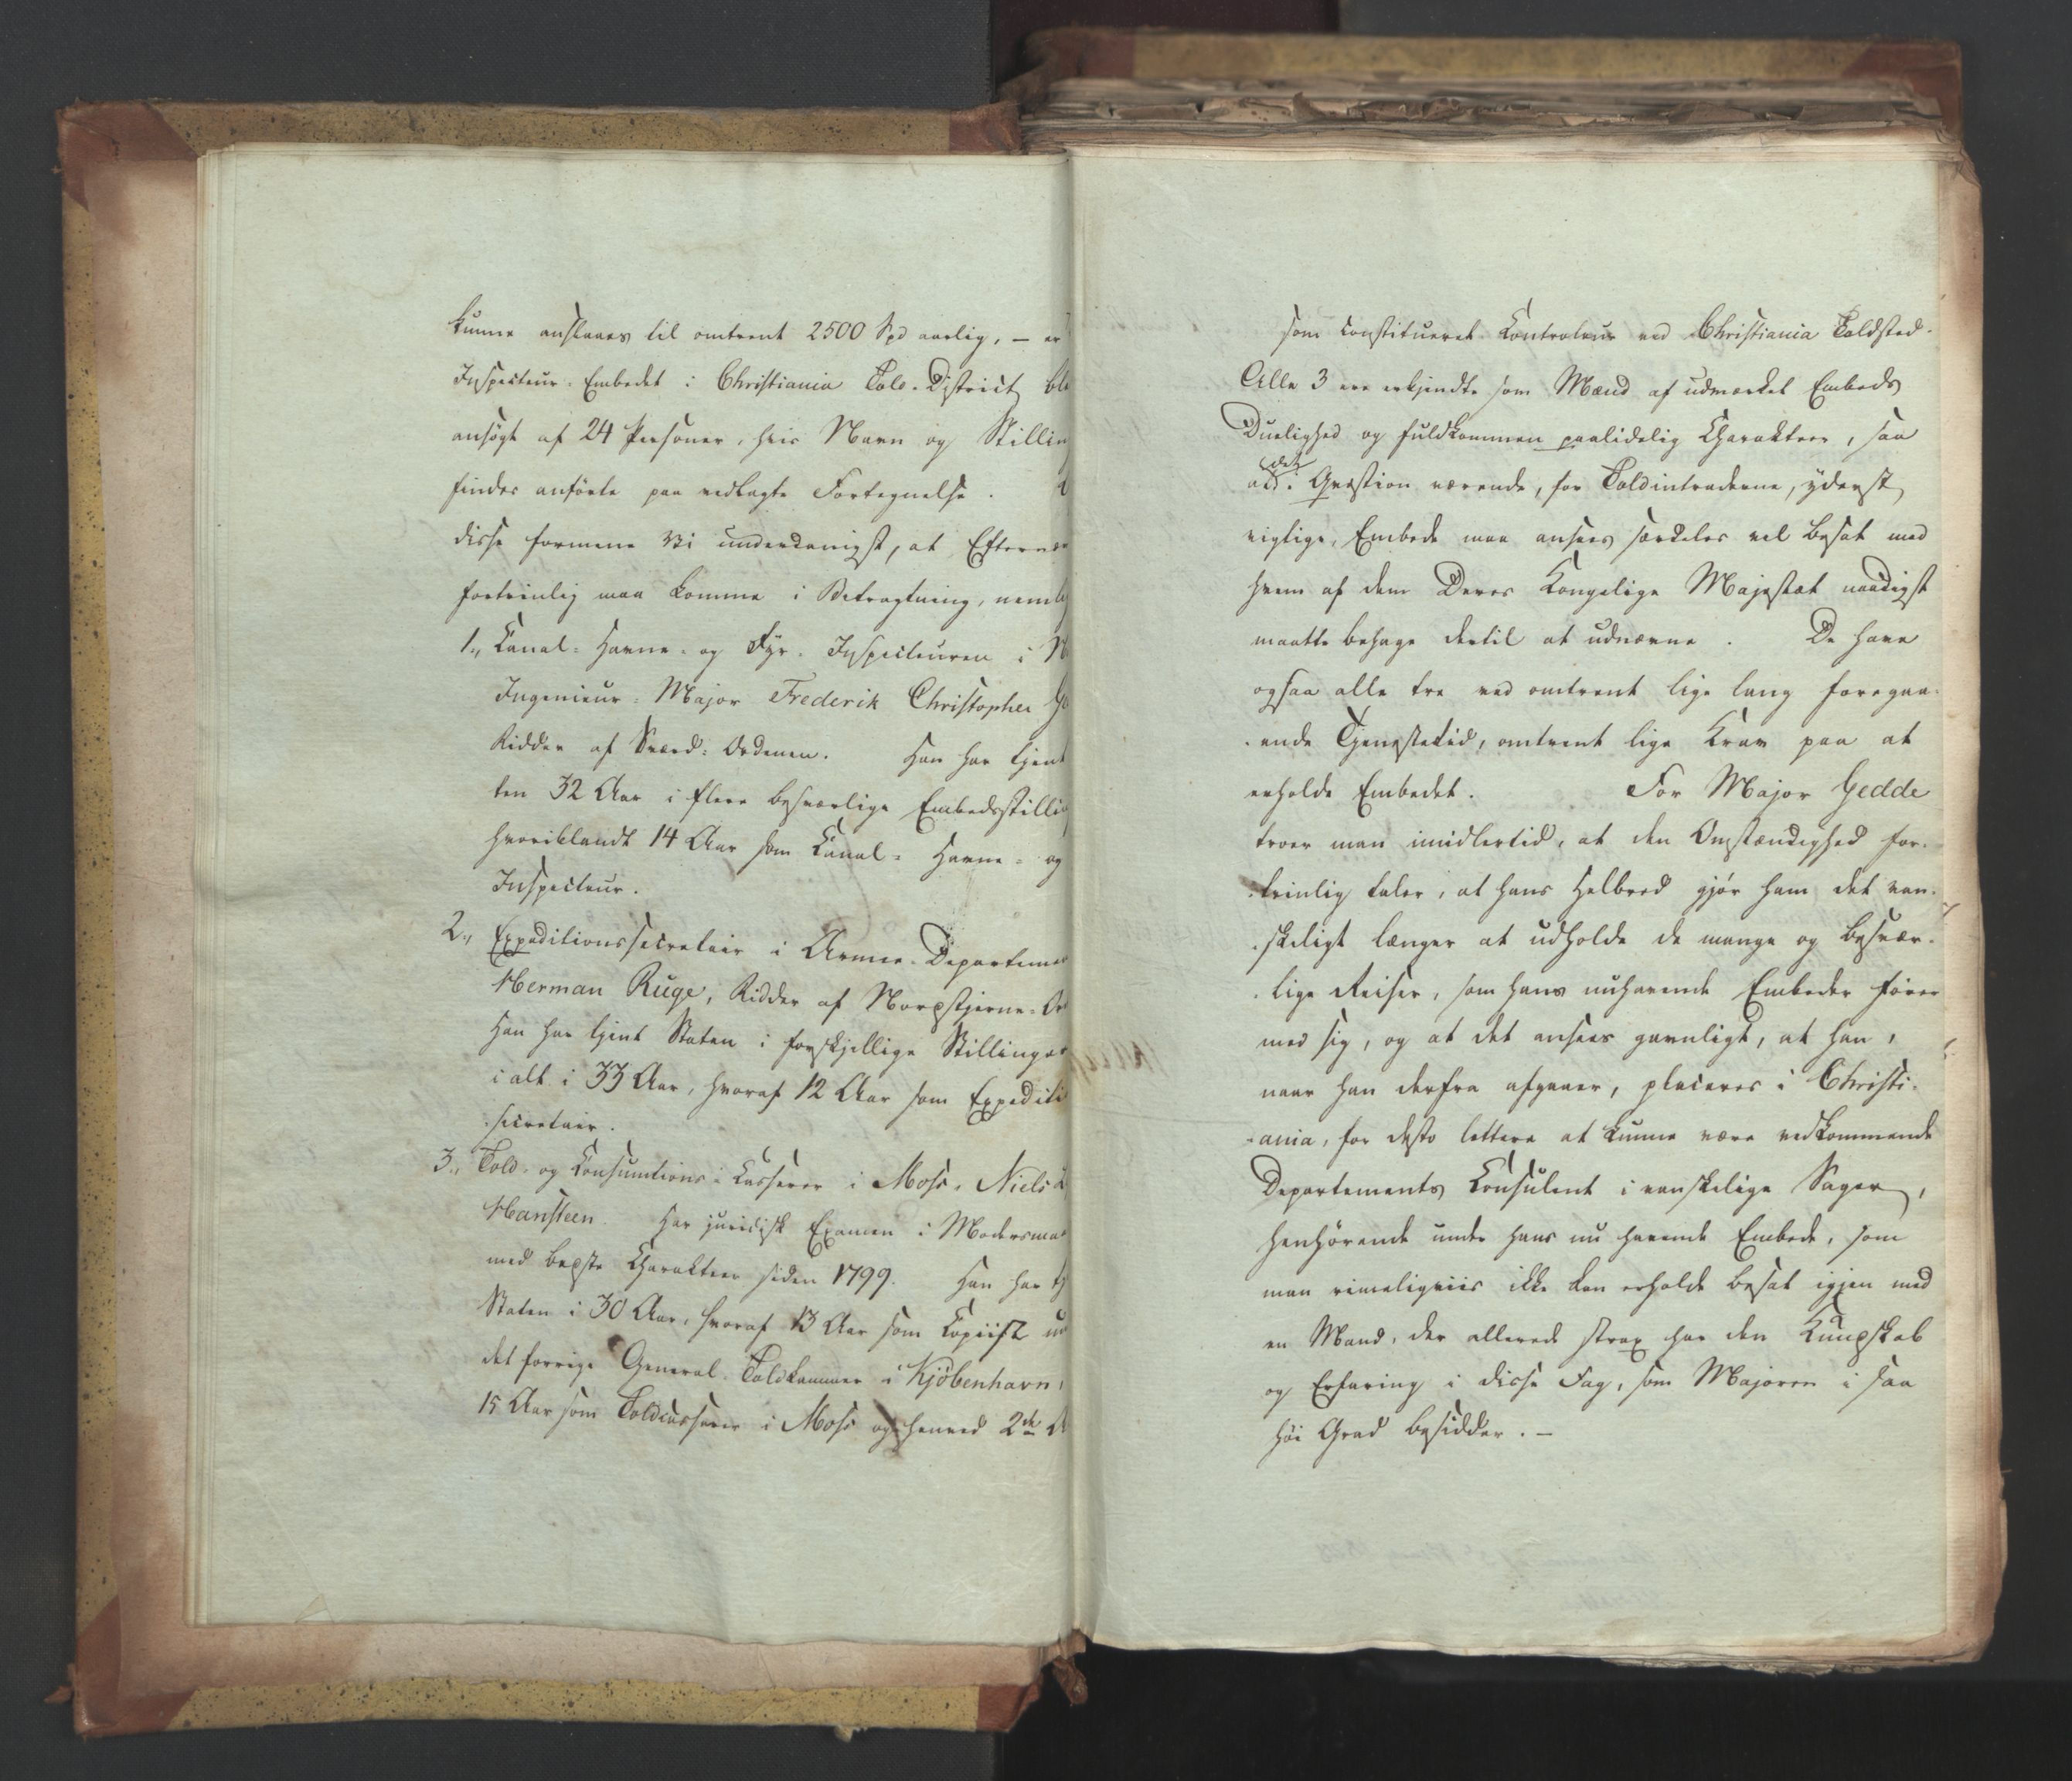 kunne anslaaes til omtrent 2500 Spd aarlig, – er
Inspecteur-Embedet i Christiania Told-District ble
ansögt af 24 Personer, hvis Navn og Stillin
findes anförte paa vedlagte Fortegnelse.
disse formene Vi underdanigst, at Efternæv
fortrinlig maa komme i Betragtning, nemlig
1., Canal- Havne- og Fyr-Inspecteuren i N
Ingenieur-Major Frederik Christopher Ge
Ridder af Sværd-Ordenen. Han har tjent
ten 32 Aar i flere besværlige Embedsstillin
hvoriblandt 14 Aar som Canal- Havne- og
Inspecteur.
2., Expeditionssecretair i Armee-Departeme
Herman Ruge, Ridder af Nordstjerne-Or
Han har tjent Staten i forskjellige Stillinger
i alt i 33 Aar, hvoraf 12 Aar som Expediti
secretair.
3., Told- og Consumtions-Casserer i Moss, Niels
Hansteen. Har juridisk Examen i Modersmaa
med bedste Charakteer siden 1799. Han har tj
Staten i 30 Aar, hvoraf 13 Aar som Copiist un
det forrige General-Toldkammer i Kjöbenhavn,
15 Aar som Toldcasserer i Moss og henved 2de A
som constitueret Controleur ved Christiania Toldsted.
Alle 3 ere erkjendte som Mænd af udmærket Embeds
Duelighed og fuldkommen paalidelig Charakteer, saa
at det i Qvæstion værende, for Toldintraderne, yderst
vigtige, Embede maa ansees særdeles vel besat med
hvem af dem Deres Kongelige Majestæt naadigst
maatte behage dertil at udnævne. De have
ogsaa alle tre ved omtrent lige lang foregaa-
-ende Tjenestetid, omtrent lige Krav paa at
erholde Embedet. For Major Gedde
troer man imidlertid, at den Omstændighed for-
-trinlig taler, at hans Helbred gjör ham det van-
-skeligt længer at udholde de mange og besvær-
-lige Reiser, som hans nuhavende Embeder förer
med sig, og at det ansees gavnligt, at han,
naar han derfra afgaaer, placeres i Christi-
-ania, for desto lettere at kunne være vedkommende
Departements Consulent i vanskelige Sager,
henhörende under hans nu havende Embede, som
man rimeligviis ikke kan erholde besat igjen med
en Mand, der allerede strax har den Kundskab
og Erfaring i disse Fag, som Majoren i saa
höi Grad besidder. –